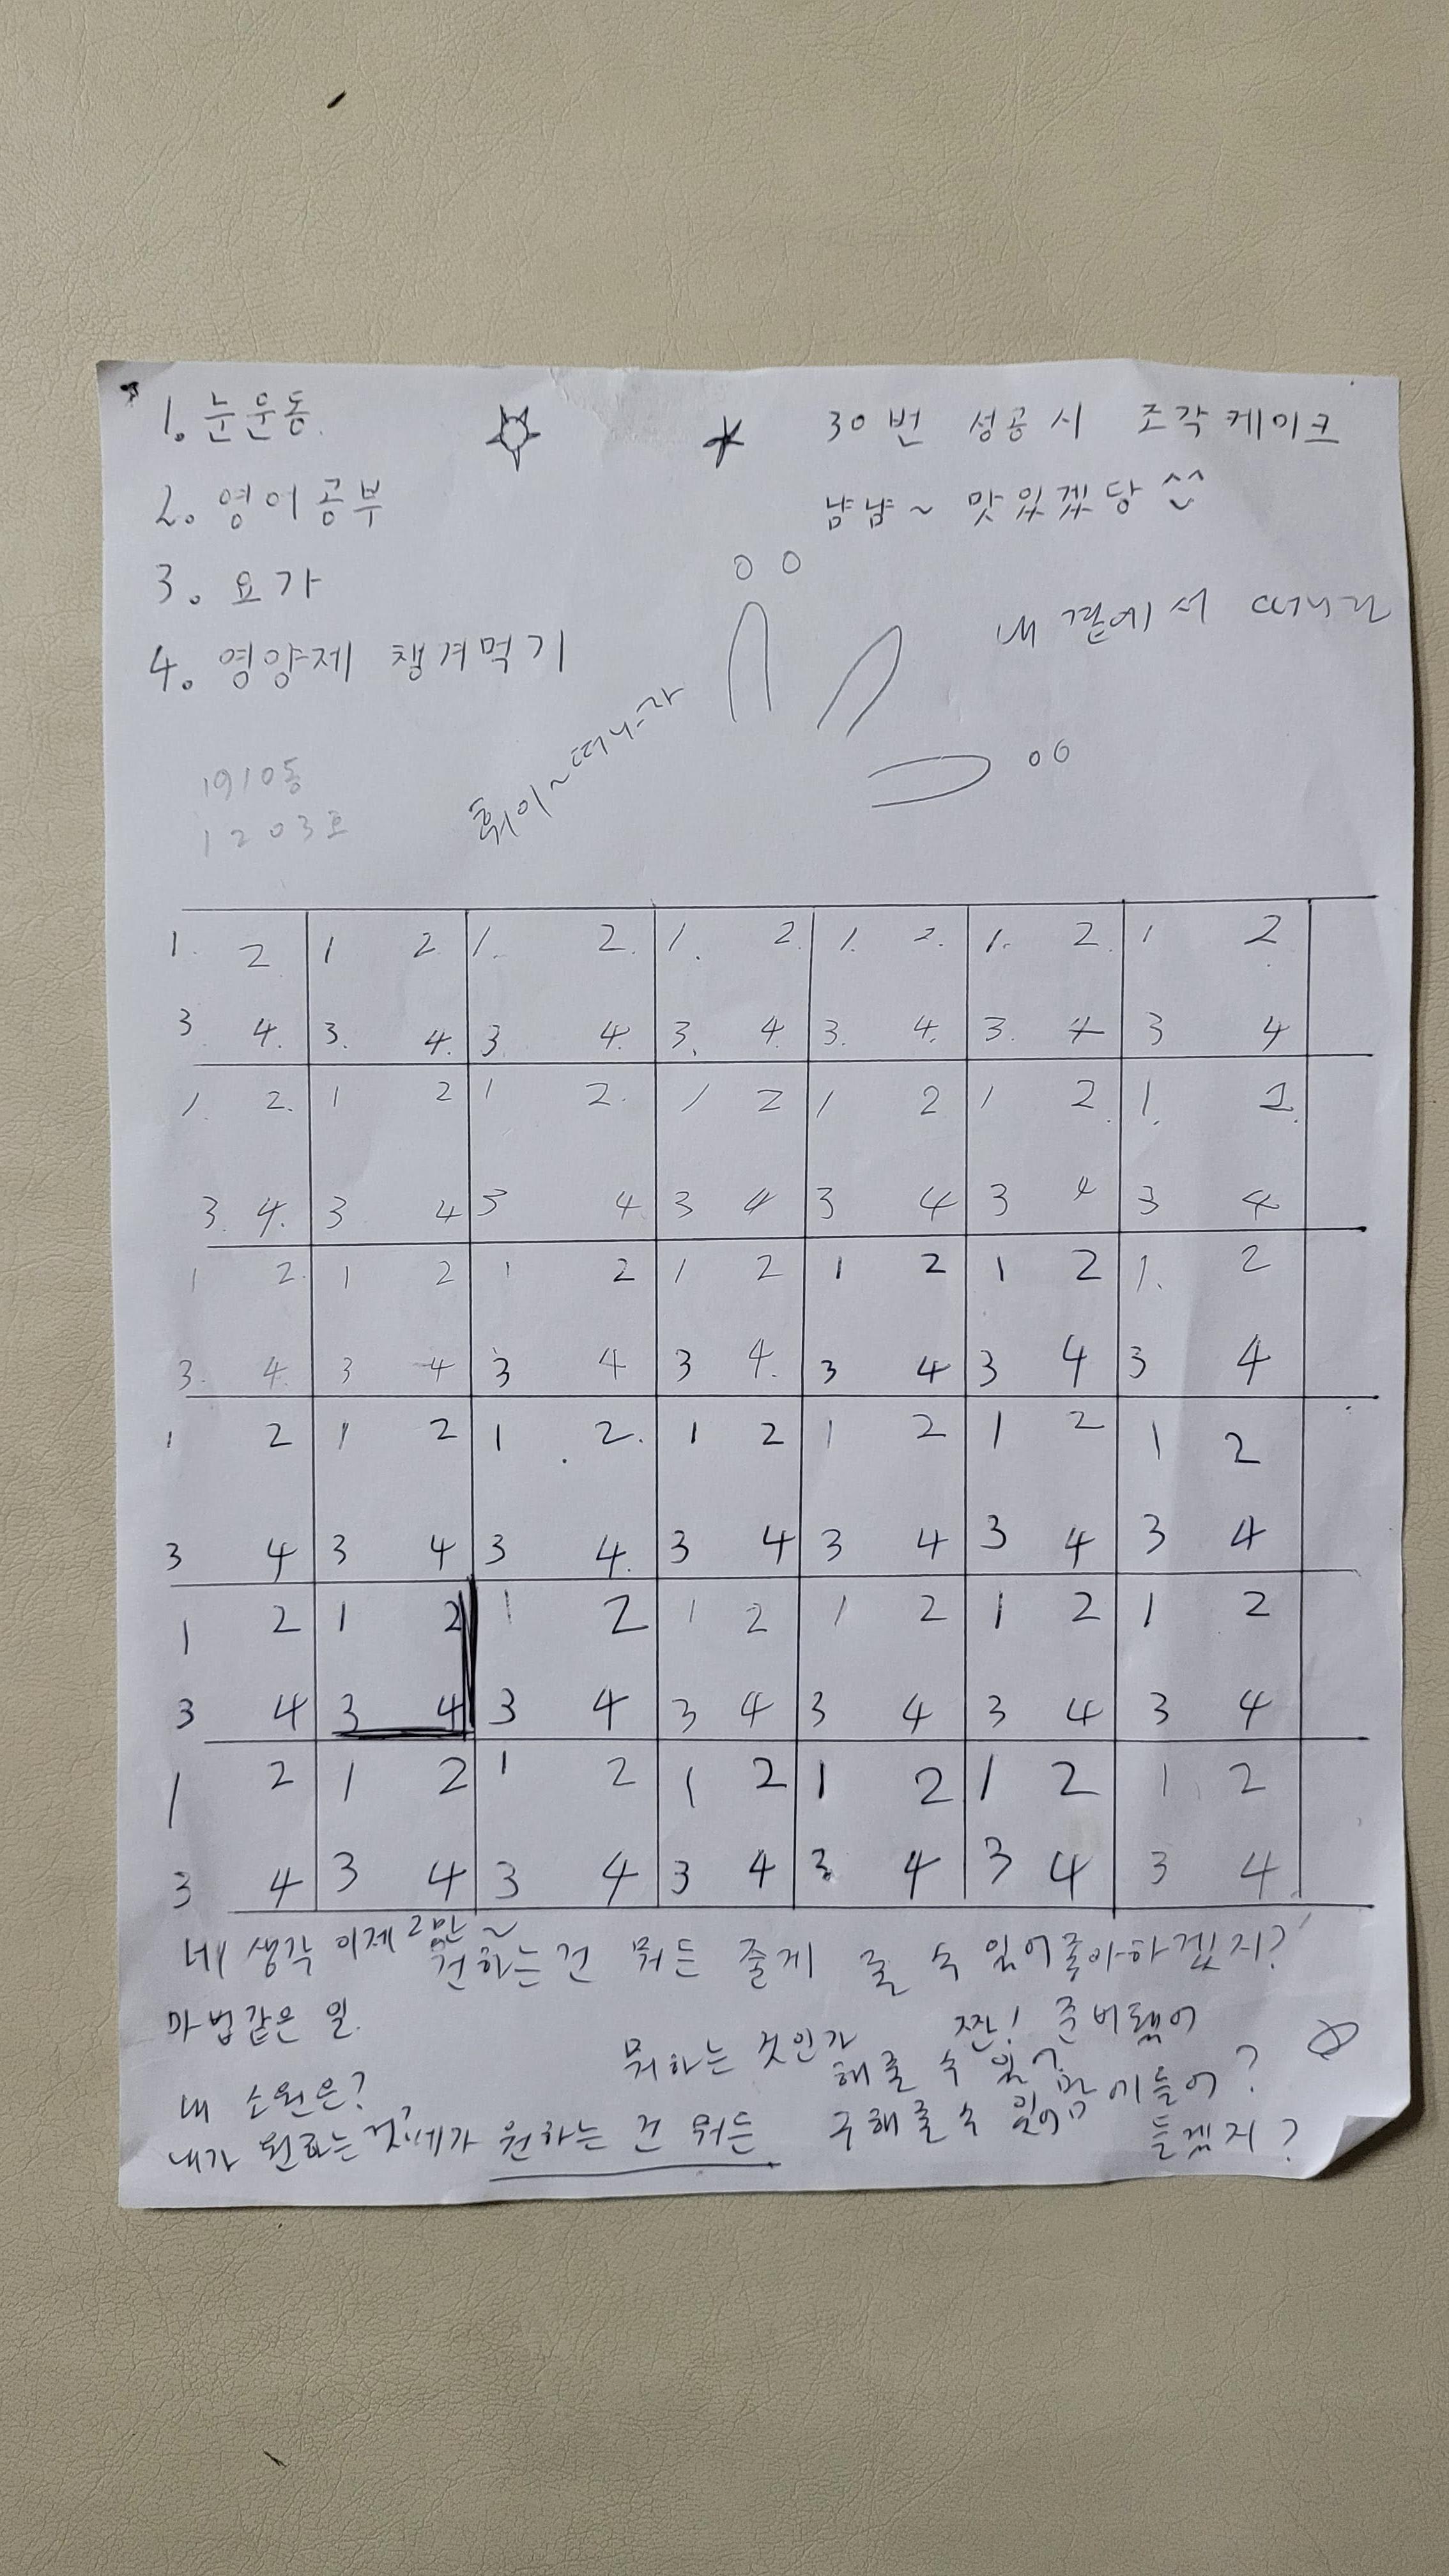 1. 눈운동
30번 성공시 조각케이크
2. 영어공부
냠냠~ 맛있겠당 ^^
3. 요가
내 곁에서 떠나라
4. 영양제 챙겨먹기
훠이~떠나라
1910동
1203호
1. 2 1 2 1. 2. 1. 2 1. 2. 1. 2. 1 2
3 4. 3. 4. 3 4. 3. 4. 3. 4. 3. 4 3 4
1. 2. 1 2 1 2. 1 2 1 2 1 2. 1. 2.
3. 4. 3 4 3 4 3 4 3 4 3 4 3 4
1 2. 1 2 1 2 1 2 1 2 1 2 1. 2
3. 4. 3 4 3 4 3 4. 3 4 3 4 3 4
1 2 1 2 1 2. 1 2 1 2 1 2 1 2
3 4 3 4 3 4. 3 4 3 4 3 4 3 4
1 2 1 2 1 2 1 2 1 2 1 2 1 2
3 4 3 4 3 4 3 4 3 4 3 4 3 4
1 2 1 2 1 2 1 2 1 2 1 2 1 2
3 4 3 4 3 4 3 4 3 4 3 4 3 4
네 생각 이제 그만~
원하는건 뭐든 줄게 줄 수 있어 좋아하겠지?
마법같은 일.
뭐하는 것인가 짠! 준비됐어
내 소원은? 해줄 수 있 맘에들어?
내가 원하는 것 네가 원하는 건 뭐든 구해줄수 있어 들겠지?